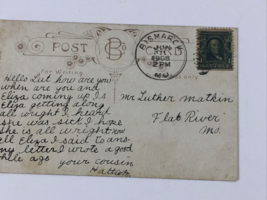 POST CARD
For Writing
BISMARCK
JUN
1908
2 PM
MO.
Hello Lut how are you
when are you and
Eliza coming up Is
Eliza getting along
all wright I heard
she was sick I hope
she is all wright now
tell Eliza I said to ans
my letter I wrote a good
while ago your cousin
Hattie
Mr Luther Matkin
Flat River
Mo.